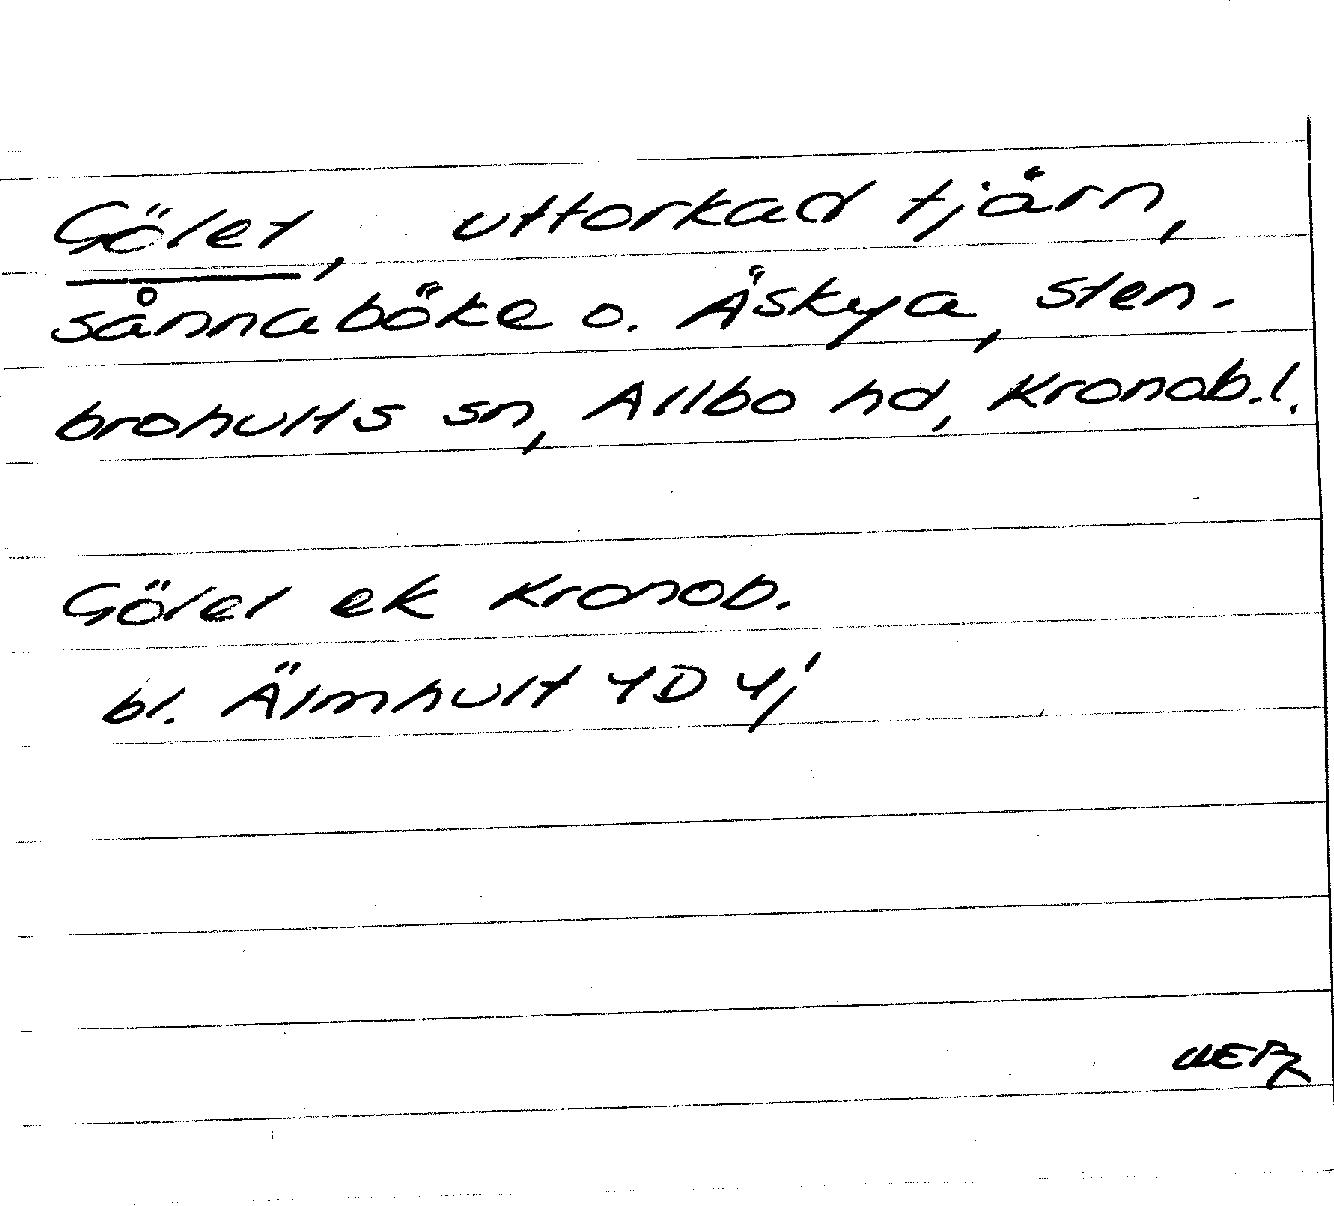 Gölet, uttorkad tjärn,
Sånnaböke o. Åskya, Sten-
brohults sn, Allbo hd, Kronob.l.
Gölet ek Kronob.
bl. Älmhult 4D 4j